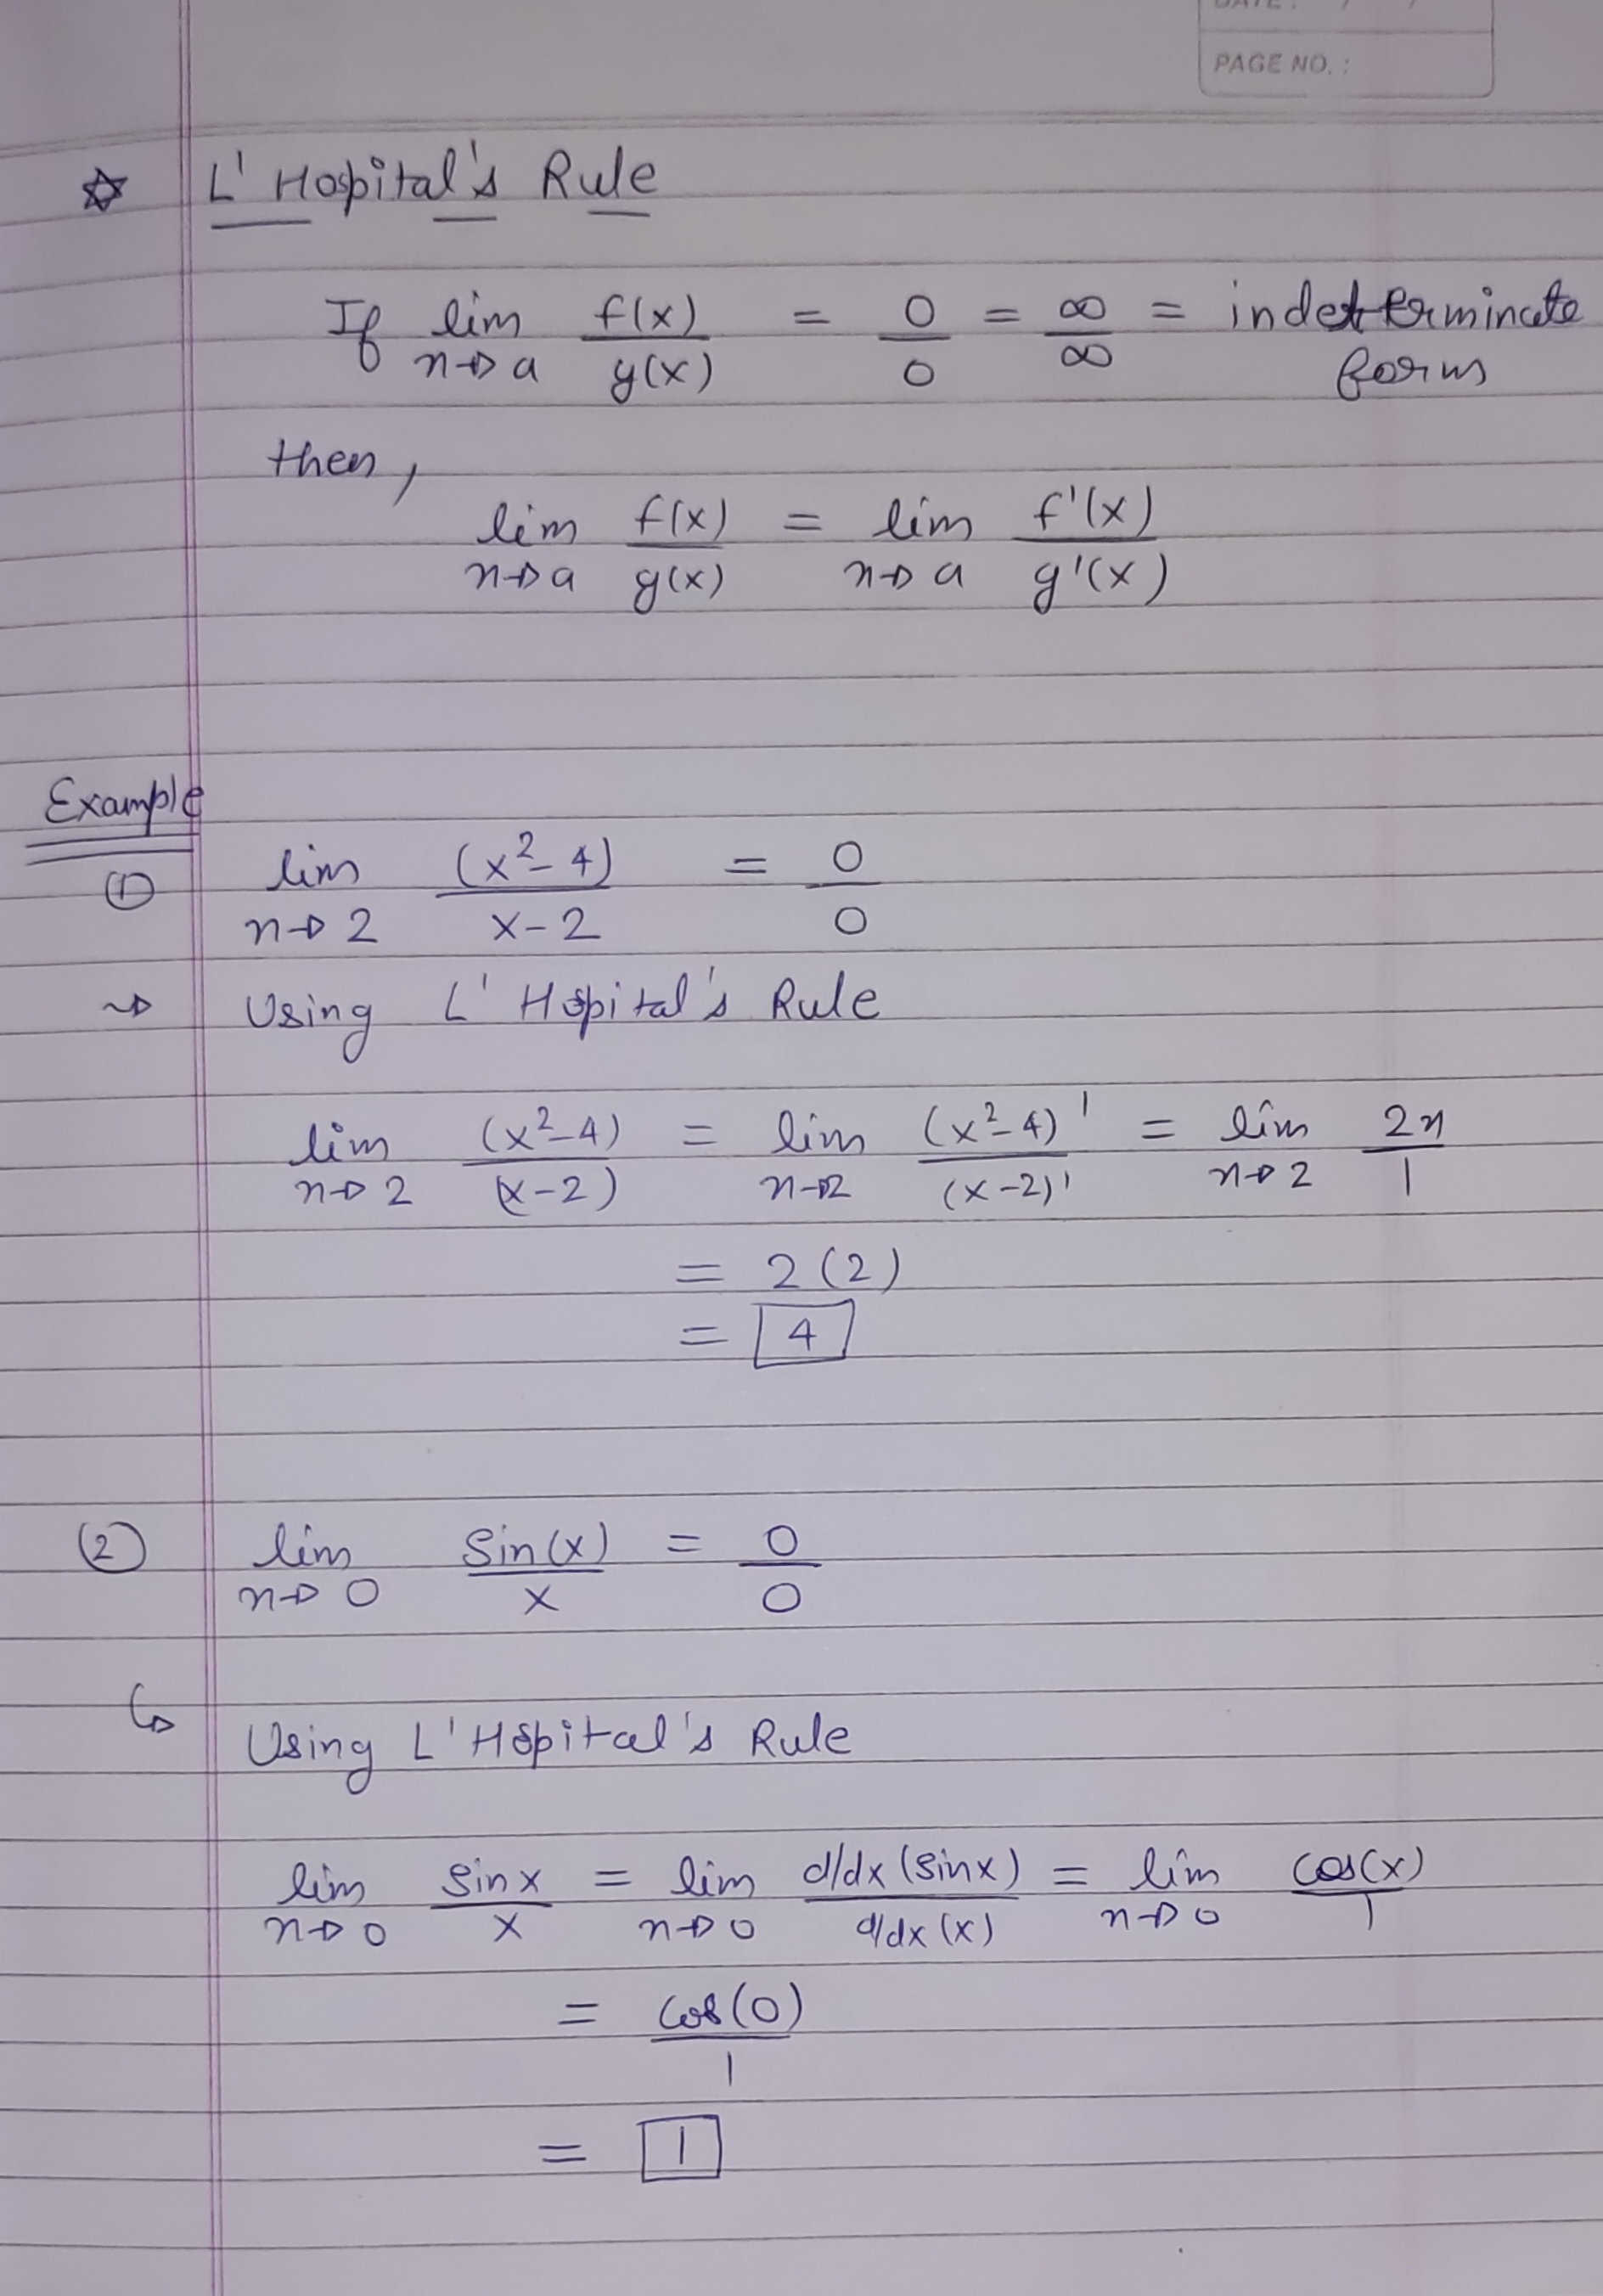 DATE : / /
PAGE NO. :
☆ L'Hospital's Rule
If lim x→a f(x)/g(x) = 0/0 = ∞/∞ = indeterminate forms
then,
lim x→a f(x)/g(x) = lim x→a f'(x)/g'(x)
Example
① lim x→2 (x²-4)/x-2 = 0/0
→ Using L'Hôpital's Rule
lim x→2 (x²-4)/(x-2) = lim x→2 (x²-4)'/(x-2)' = lim x→2 2x/1
= 2(2)
= 4
② lim x→0 Sin(x)/x = 0/0
↳ Using L'Hôpital's Rule
lim x→0 sinx/x = lim x→0 d/dx(sinx)/d/dx(x) = lim x→0 cos(x)/1
= cos(0)/1
= 1